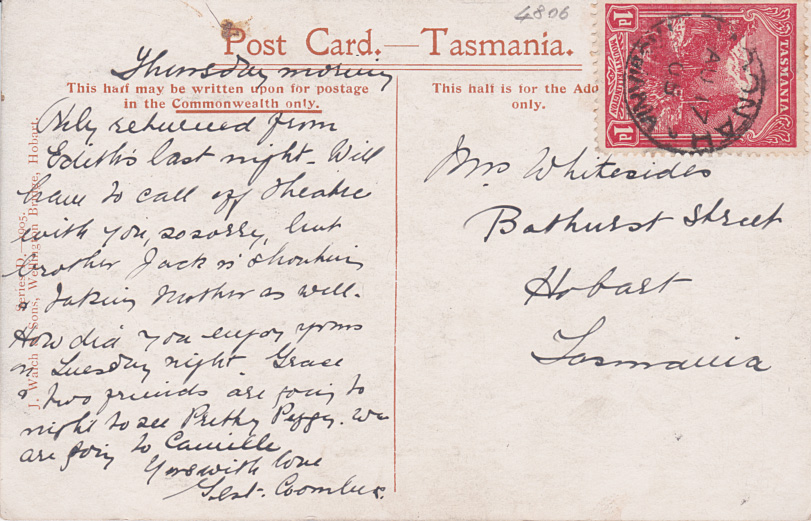 4806
Post Card.—Tasmania.
This half may be written upon for postage
in the Commonwealth only.
This half is for the Add
only.
Thursday morning
Only returned from
Edith's last night - Will
have to call off theatre
with you, so sorry, but
brother Jack is shouting
& taking Mother as well -
How did you enjoy yours
on Tuesday night. Grace
& two friends are going to
night to see Pretty Peggy. We
are going to Camille
Yours with love
Gert. Coombes.
Mrs Whitesides
Bathurst Street
Hobart
Tasmania
J. Walch & Sons, Wellington Bridge, Hobart.
Series D, 1905.
1d
1d
TASMANIA
TASMANIA
1d
1d